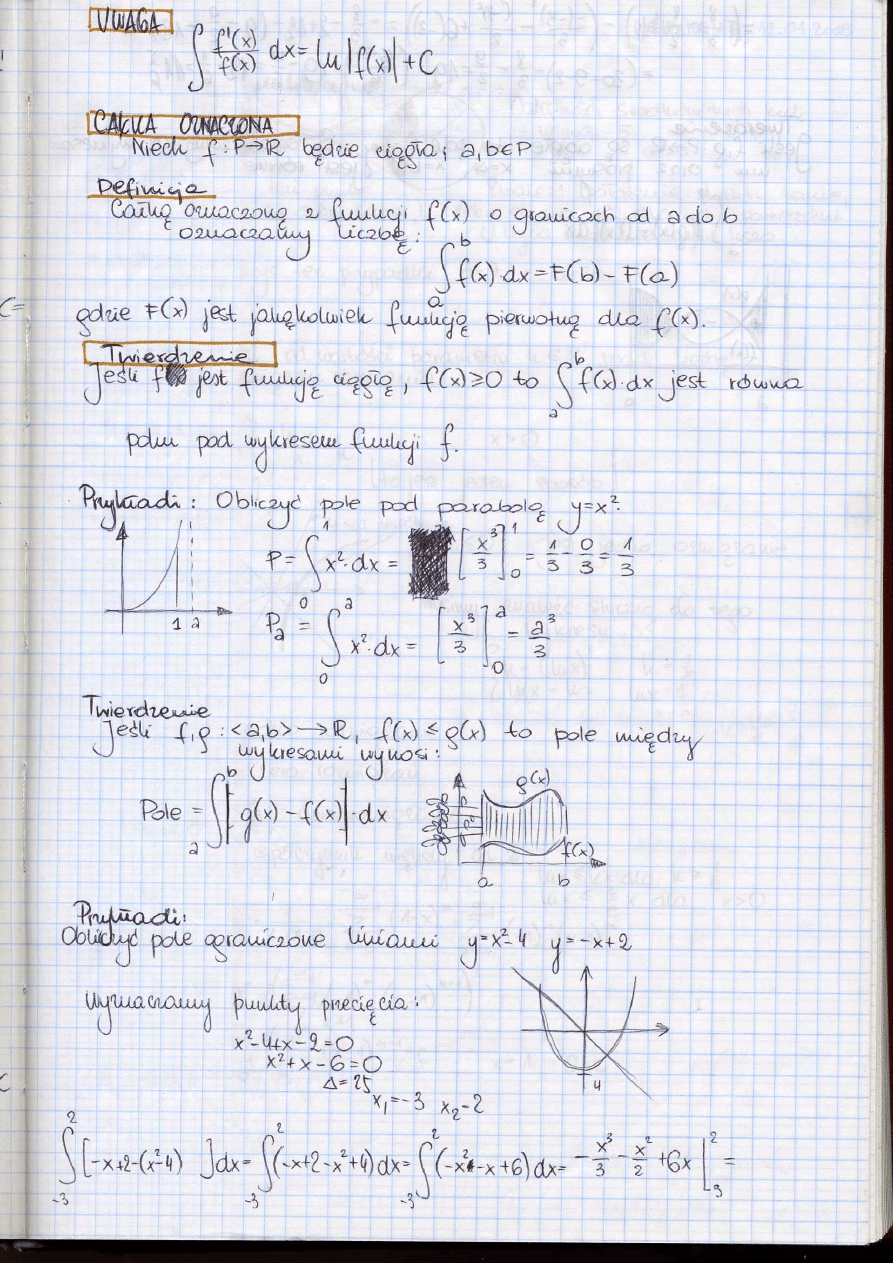 UWAGA
∫ f'(x)/f(x) dx = ln|f(x)| + C
CAŁKA OZNACZONA
Niech f: P→ℝ będzie ciągła; a,b∈P
Definicja
Całką oznaczoną z funkcji f(x) o granicach od a do b
oznaczamy liczbę:
∫_a^b f(x)·dx = F(b) - F(a)
gdzie F(x) jest jakąkolwiek funkcją pierwotną dla f(x).
Twierdzenie
Jeśli f jest funkcją ciągłą, f(x)≥0 to ∫_a^b f(x)·dx jest równa
polu pod wykresem funkcji f.
Przykładi: Obliczyć pole pod parabolą y=x².
P = ∫_0^1 x²·dx = [x³/3]_0^1 = 1/3 - 0/3 = 1/3
1 a
P_a = ∫_0^a x²·dx = [x³/3]_0^a = a³/3
Twierdzenie
Jeśli f,g: <a,b> → ℝ, f(x) ≤ g(x) to pole między
wykresami wynosi:
Pole = ∫_a^b |g(x) - f(x)|·dx
g(x)
f(x)
a b
Przykładi:
Obliczyć pole ograniczone liniami y=x²-4 y=-x+2
Wyznaczamy punkty przecięcia:
x²-4+x-2=0
x²+x-6=0
Δ=25
4
x₁=-3 x₂-2
∫_-3^2 [-x+2-(x²-4) ]dx = ∫_-3^2 (-x+2-x²+4)dx = ∫_-3^2 (-x²-x+6)dx = -x³/3 - x²/2 + 6x |_-3^2 =